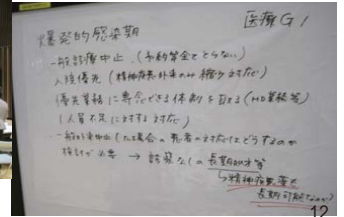 医療G1
爆発的感染期
一般診療中止(予約等全てとらない)
入院優先(精神疾患外来のみ細々対応)
優先業務に専念できる体制を固める(HD業務等)
(人員不足に対する対応)
一般外来中止した場合の患者の対応はどうするのか
検討が必要 → 診察なしの長期処方等
↳精神疾患薬も
長期可能なのか
12